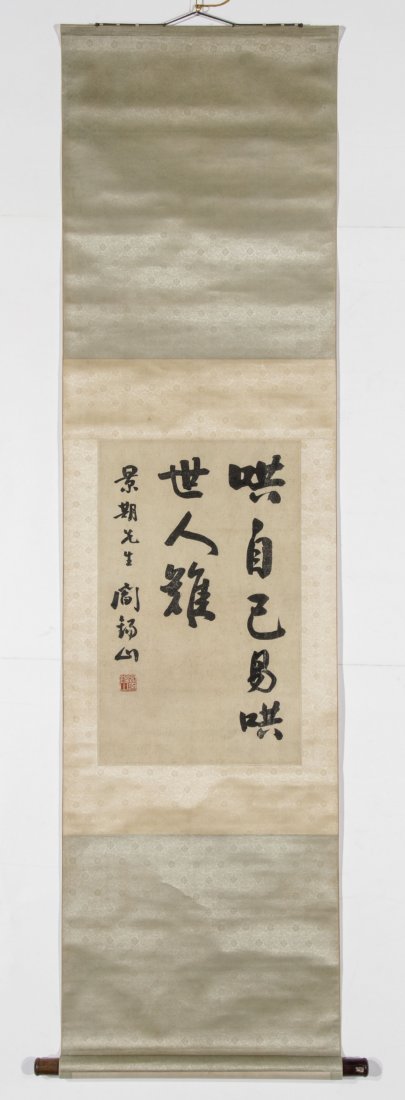 哄自己易哄
世人難
景期先生 閻錫山